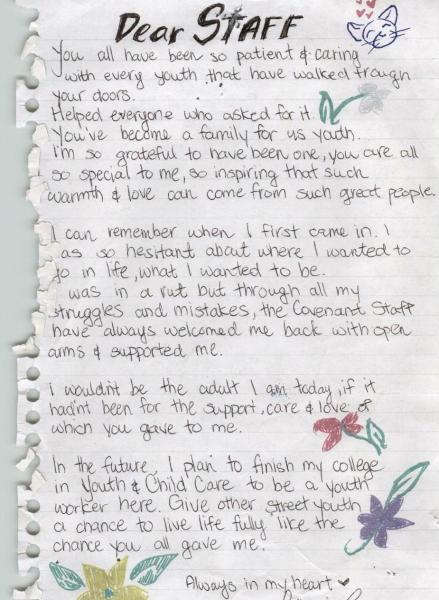 Dear STAFF
You all have been so patient & caring
with every youth that have walked trough
your doors.
Helped everyone who asked for it.
You've become a family for us youth.
I'm so grateful to have been one, you are all
so special to me, so inspiring that such
warmth & love can come from such great people.
I can remember when I first came in. I
as so hesitant about where I wanted to
go in life, what I wanted to be.
was in a rut but through all my
struggles and mistakes, the Covenant Staff
have always welcomed me back with open
arms & supported me.
I wouldn't be the adult I am today, if it
hadn't been for the support, care & love of
which you gave to me.
In the future, I plan to finish my college
in Youth & Child Care to be a youth
worker here. Give other street youth
a chance to live life fully like the
chance you all gave me.
Always in my heart ♥